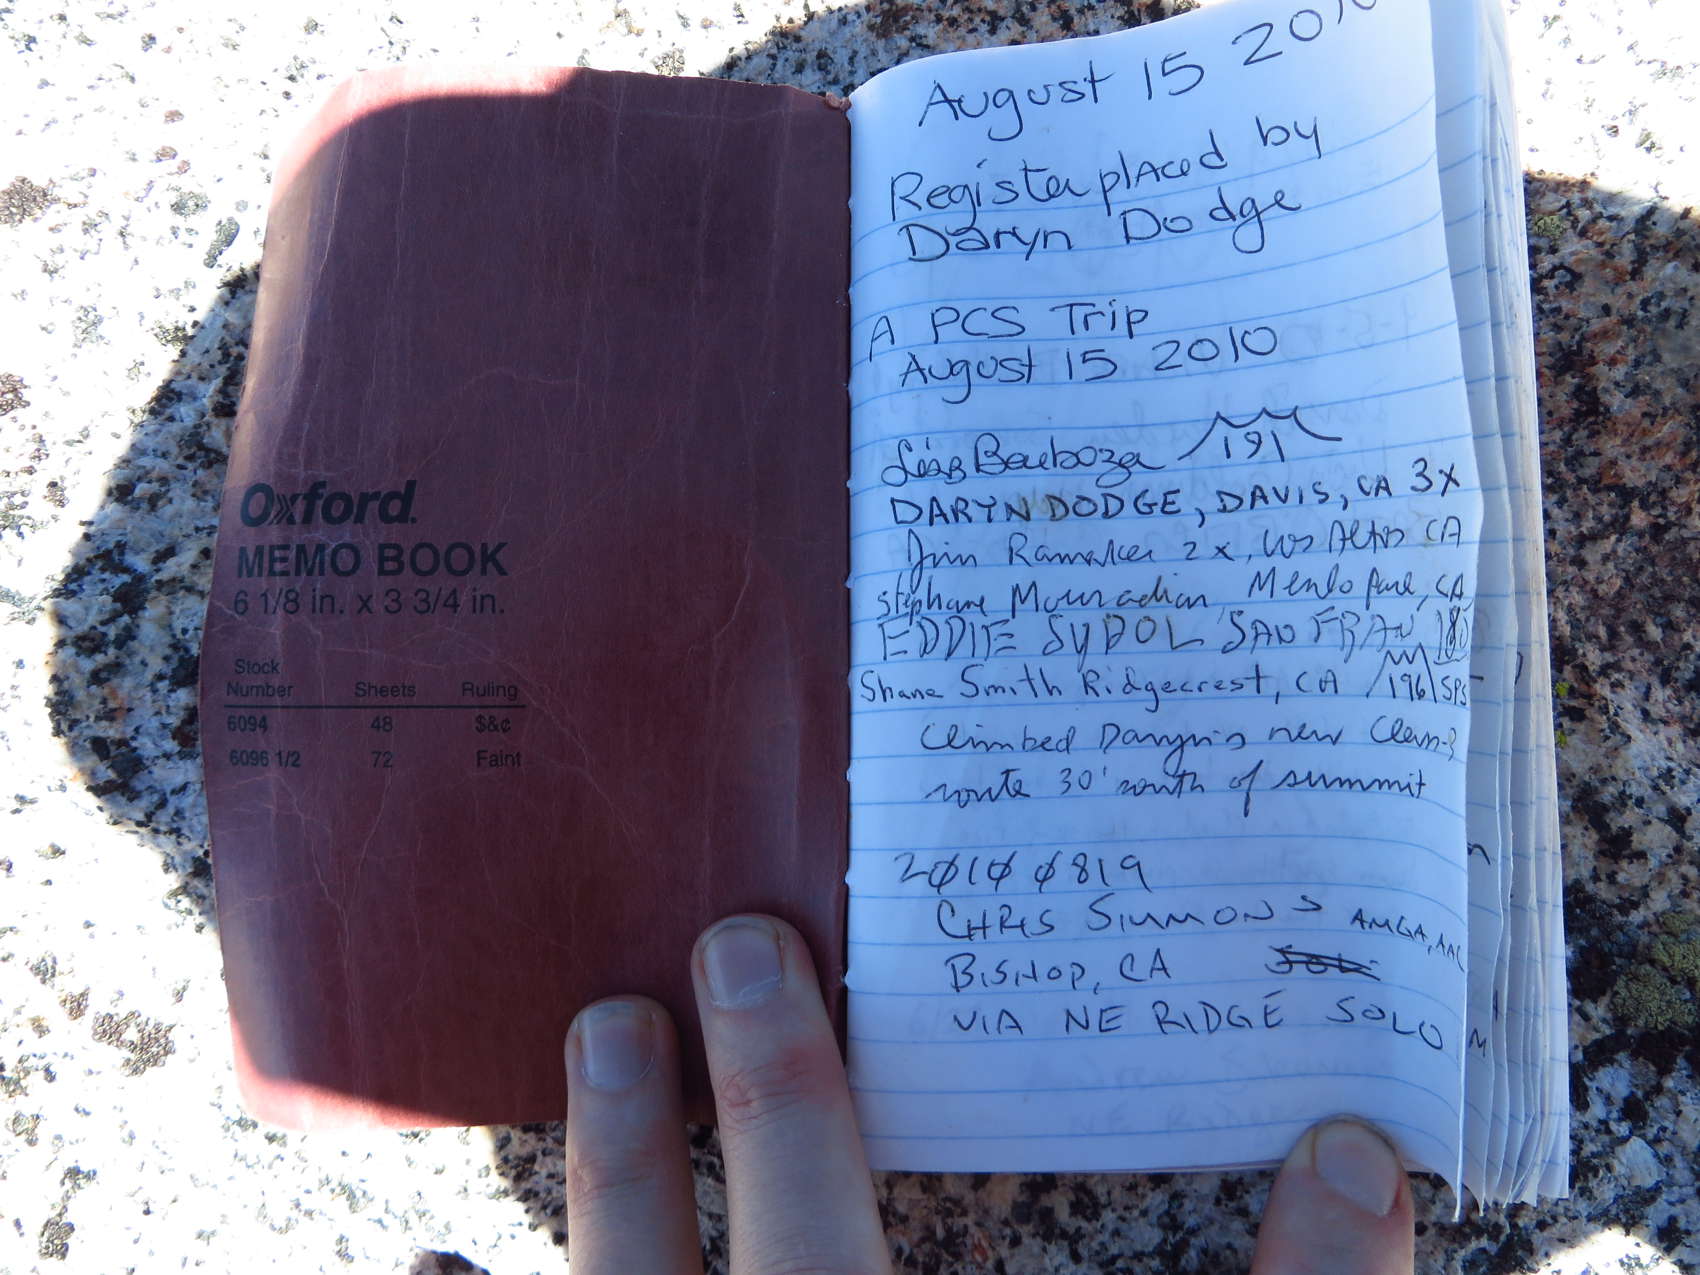 Oxford
MEMO BOOK
6 1/8 in. x 3 3/4 in.
Stock
Number Sheets Ruling
6094 48 $&¢
6096 1/2 72 Faint
August 15 2010
Register placed by
Daryn Dodge
A PCS Trip
August 15 2010
Barboza 191
DARYN DODGE, DAVIS, CA 3x
Jim Ramaker 2x, Los Altos CA
Stephane Mouradian, Menlo Park, CA
EDDIE SUDOL SAN FRAN 180
Shane Smith Ridgecrest, CA 196 SPS
Climbed Daryn's new Class-3
route 30' south of summit
2010 0819
CHRIS SIMMONS AMGA, AAC
BISHOP, CA
VIA NE RIDGE SOLO